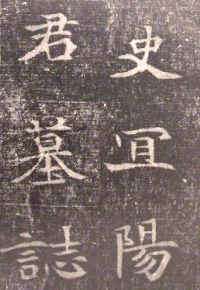 史冝陽
君墓誌